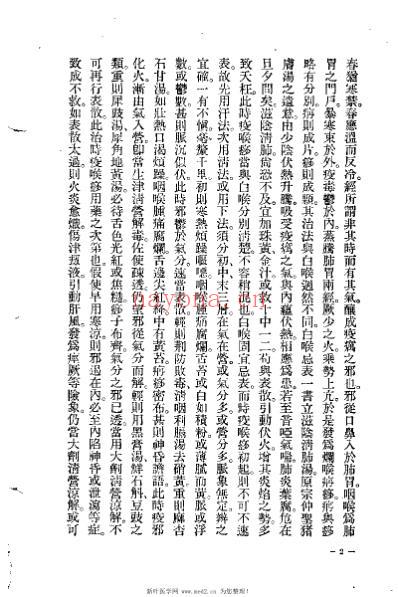 春猶寒禁春應溫而反冷經所謂非其時而有其氣釀成疫癘之邪也邪從口鼻入於肺胃咽喉爲肺
胃之門戶暴寒束於外疫毒鬱於內蒸騰肺胃兩經厥少之火乘勢上亢於是發爲爛喉痧痧與疹
略有分別痧則成片疹則成顆其治法與白喉迥然不同白喉忌表一書立滋陰清肺湯原宗仲聖猪
膚湯之遺意由少陰伏熱升騰吸受疫癘之氣與內蘊伏熱相應爲患若至音啞氣喘肺炎葉腐危在
旦夕間矣滋陰清肺尚恐不及宜加珠黃金汁或救十中一二苟與表散引動伏火增其炎焰之勢多
致夭枉此時疫喉痧當與白喉分別清楚不容稍混也白喉固宜忌表而時疫喉痧初起則不可不速
表故先用汗法次用清法或用下法須分初中末三層在氣在營或氣分多或營分多脈象無定辨之
宜確一有不愼毫釐千里初則寒熱煩躁嘔噁咽喉腫痛腐爛舌苔或白如積粉或薄膩而黃脈或浮
數或鬱數甚則脈沉似伏此時邪鬱於氣分速當表散輕則荆防敗毒清咽利膈湯去硝黃重則麻杏
石甘湯如壯熱口渴煩躁咽喉腫痛腐爛舌邊尖紅絳中有黃苔痧疹密布甚則神昏譫語此時疫邪
化火漸由氣入營卽當生津清營解毒佐使疎透仍望邪從氣分而解輕則用黑膏湯鮮石斛豆豉之
類重則犀豉湯犀角地黃湯必待舌色光紅或焦糙痧子布齊氣分之邪已透當用大劑清營涼解不
可再行表散此治時疫喉痧用藥之次第也假使早用寒涼則邪遏在內必至內陷神昏或泄瀉等症
致成不救如表散太過則火炎愈熾傷津竭液引動肝風發爲痙厥等險象仍當大劑清營涼解或可
— 2 —
hayona.com
新叶医学网-www.med2.cn 为您整理!